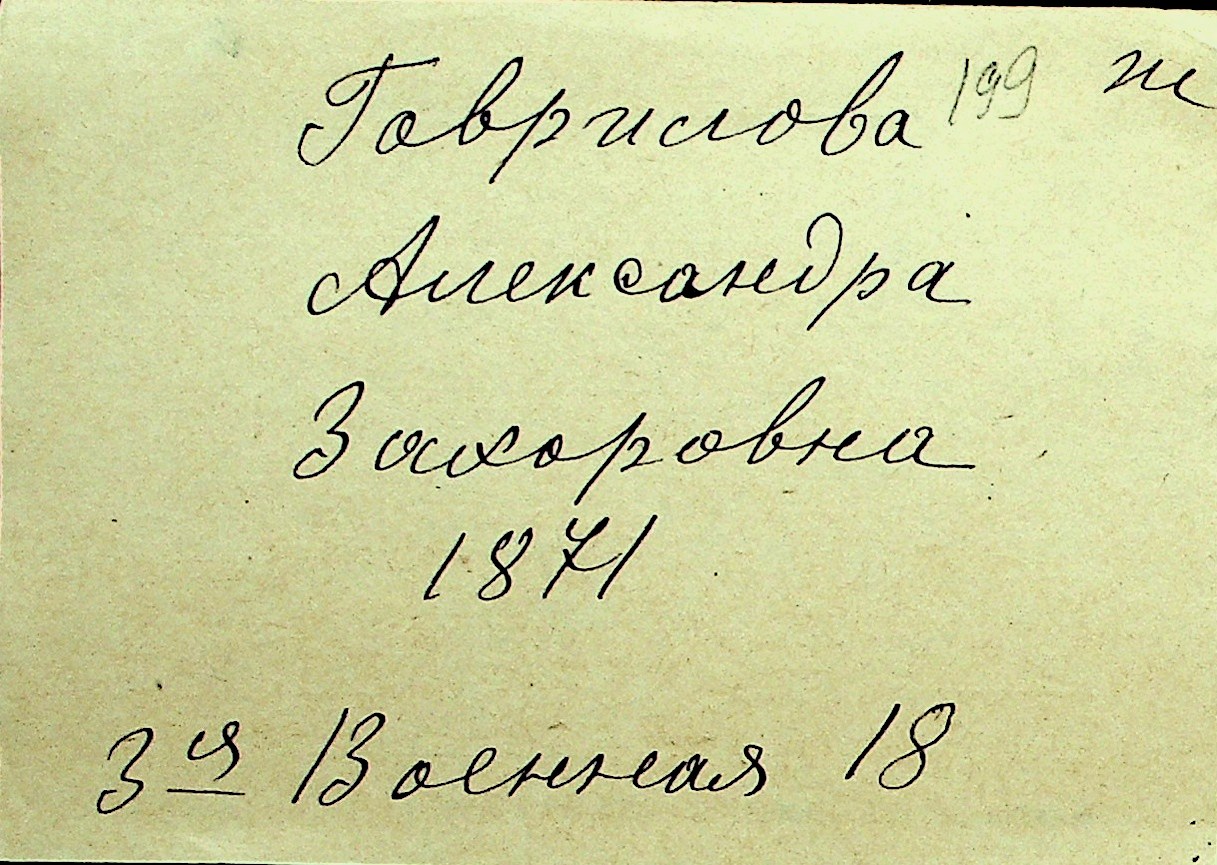 Гаврилова 199 ж
Александра
Захаровна
1871
3я Военная 18